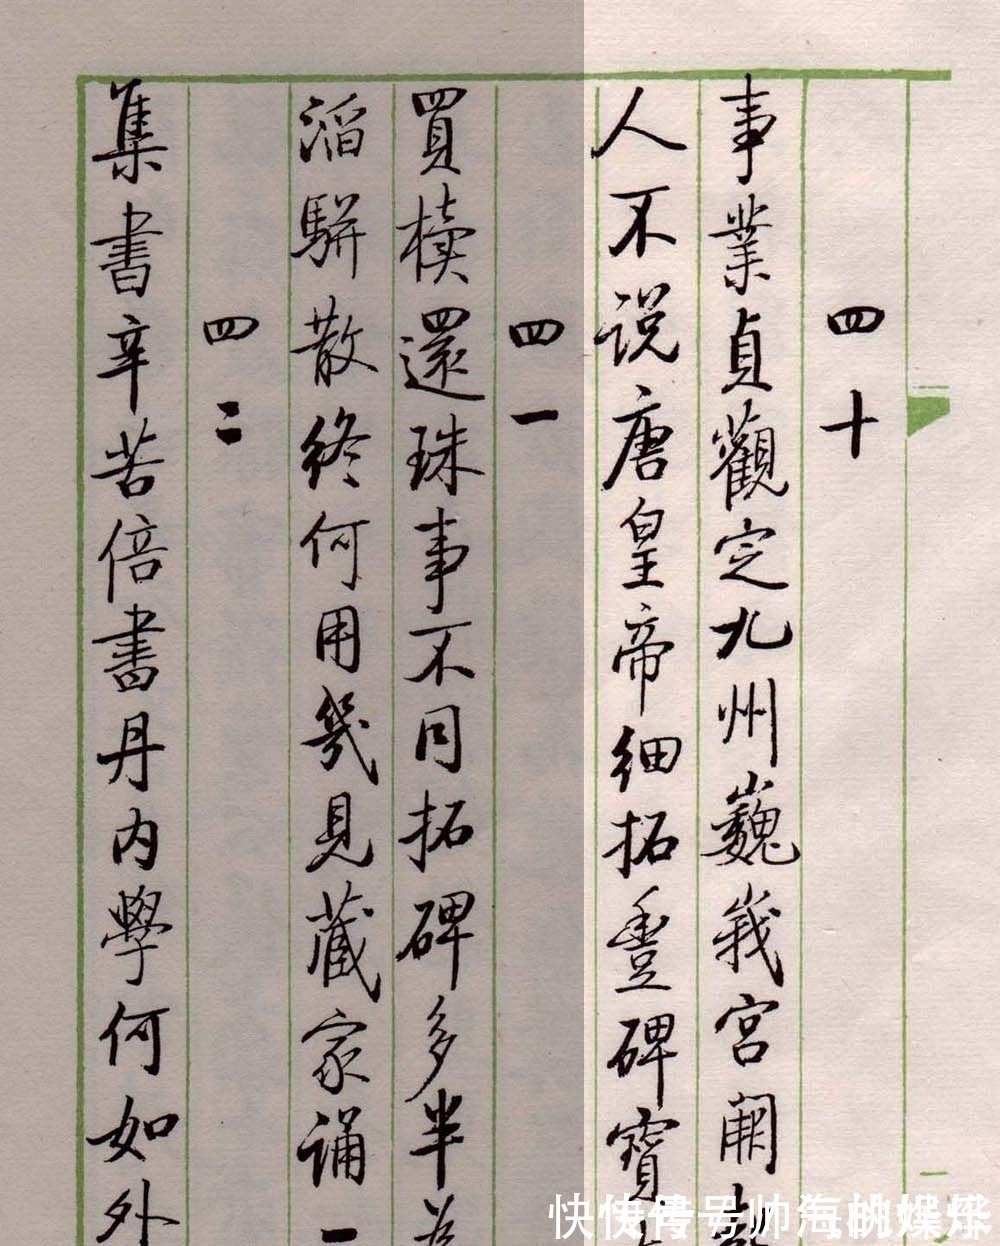 四十
事業貞觀定九州巍峩宮闕
人不说唐皇帝细拓豊碑寶
四一
買櫝還珠事不同拓碑多半為
滔騈散終何用幾見藏家誦一
四二
集書辛苦倍書丹内學何如外